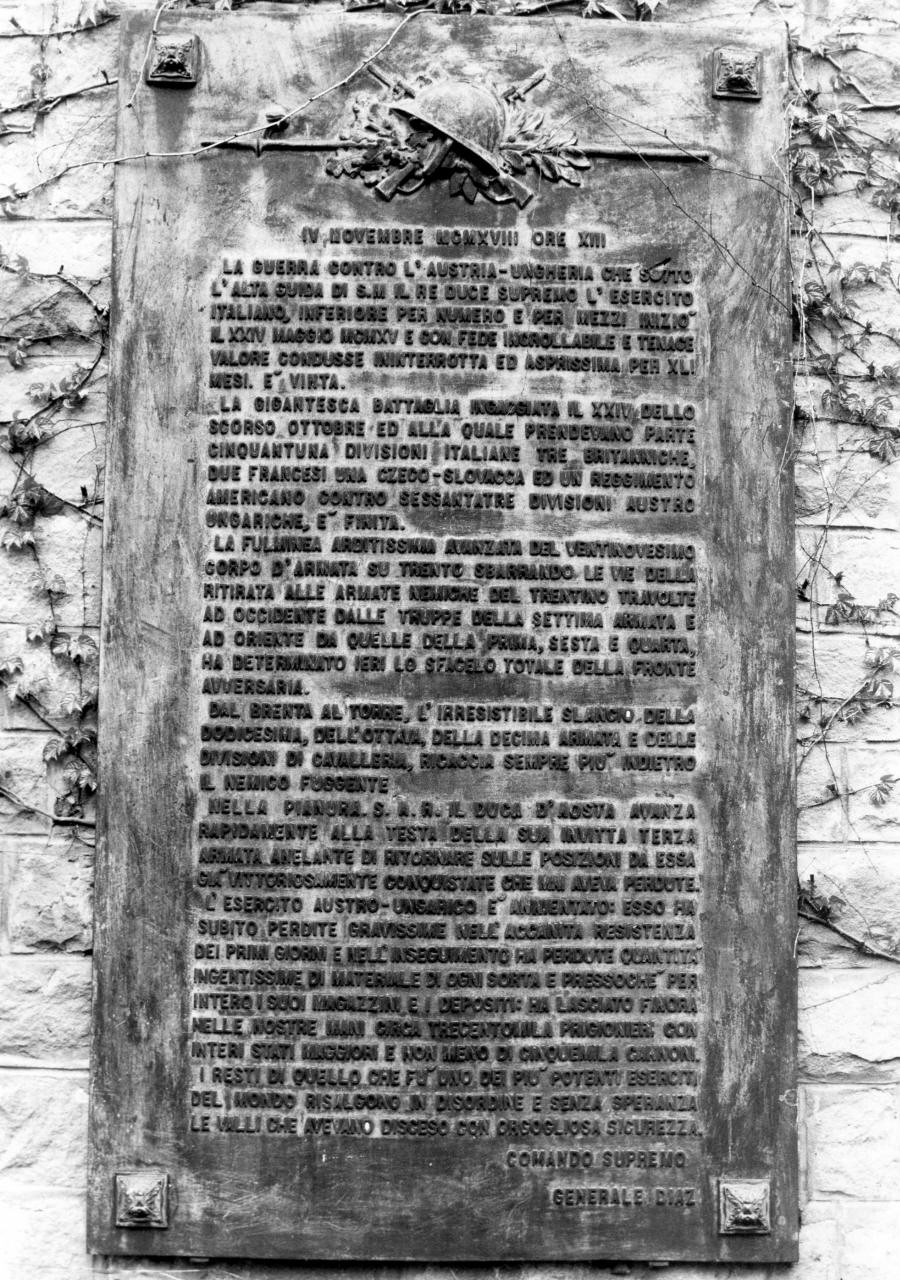 IV NOVEMBRE MCMXVIII ORE XIII
LA GUERRA CONTRO L'AUSTRIA-UNGHERIA CHE SOTTO
L'ALTA GUIDA DI S.M IL RE DUCE SUPREMO L'ESERCITO
ITALIANO, INFERIORE PER NUMERO E PER MEZZI INIZIO'
IL XXIV MAGGIO MCMXV E CON FEDE INCROLLABILE E TENACE
VALORE CONDUSSE ININTERROTTA ED ASPRISSIMA PER XLI
MESI. E' VINTA.
LA GIGANTESCA BATTAGLIA INGAGGIATA IL XXIV DELLO
SCORSO OTTOBRE ED ALLA QUALE PRENDEVANO PARTE
CINQUANTUNA DIVISIONI ITALIANE TRE BRITANNICHE,
DUE FRANCESI UNA CZECO-SLOVACCA ED UN REGGIMENTO
AMERICANO CONTRO SESSANTATRE DIVISIONI AUSTRO
UNGARICHE, E' FINITA.
LA FULMINEA ARDITISSIMA AVANZATA DEL VENTINOVESIMO
CORPO D'ARMATA SU TRENTO SBARRANDO LE VIE DELLA
RITIRATA ALLE ARMATE NEMICHE DEL TRENTINO TRAVOLTE
AD OCCIDENTE DALLE TRUPPE DELLA SETTIMA ARMATA E
AD ORIENTE DA QUELLE DELLA PRIMA, SESTA E QUARTA,
HA DETERMINATO IERI LO SFACELO TOTALE DELLA FRONTE
AVVERSARIA.
DAL BRENTA AL TORRE, L'IRRESISTIBILE SLANCIO DELLA
DODICESIMA, DELL'OTTAVA, DELLA DECIMA ARMATA E DELLE
DIVISIONI DI CAVALLERIA, RICACCIA SEMPRE PIU' INDIETRO
IL NEMICO FUGGENTE
NELLA PIANURA. S. A. R. IL DUCA D'AOSTA AVANZA
RAPIDAMENTE ALLA TESTA DELLA SUA INVITTA TERZA
ARMATA ANELANTE DI RITORNARE SULLE POSIZIONI DA ESSA
GIA' VITTORIOSAMENTE CONQUISTATE CHE MAI AVEVA PERDUTE.
L'ESERCITO AUSTRO-UNGARICO E' ANNIENTATO: ESSO HA
SUBITO PERDITE GRAVISSIME NELL'ACCANITA RESISTENZA
DEI PRIMI GIORNI E NELL'INSEGUIMENTO HA PERDUTE QUANTITA'
INGENTISSIME DI MATERIALE DI OGNI SORTA E PRESSOCHE' PER
INTERO I SUOI MAGAZZINI E I DEPOSITI: HA LASCIATO FINORA
NELLE NOSTRE MANI CIRCA TRECENTOMILA PRIGIONIERI CON
INTERI STATI MAGGIORI E NON MENO DI CINQUEMILA CANNONI.
I RESTI DI QUELLO CHE FU' UNO DEI PIU' POTENTI ESERCITI
DEL MONDO RISALGONO IN DISORDINE E SENZA SPERANZA
LE VALLI CHE AVEVANO DISCESO CON ORGOGLIOSA SICUREZZA.
COMANDO SUPREMO
GENERALE DIAZ